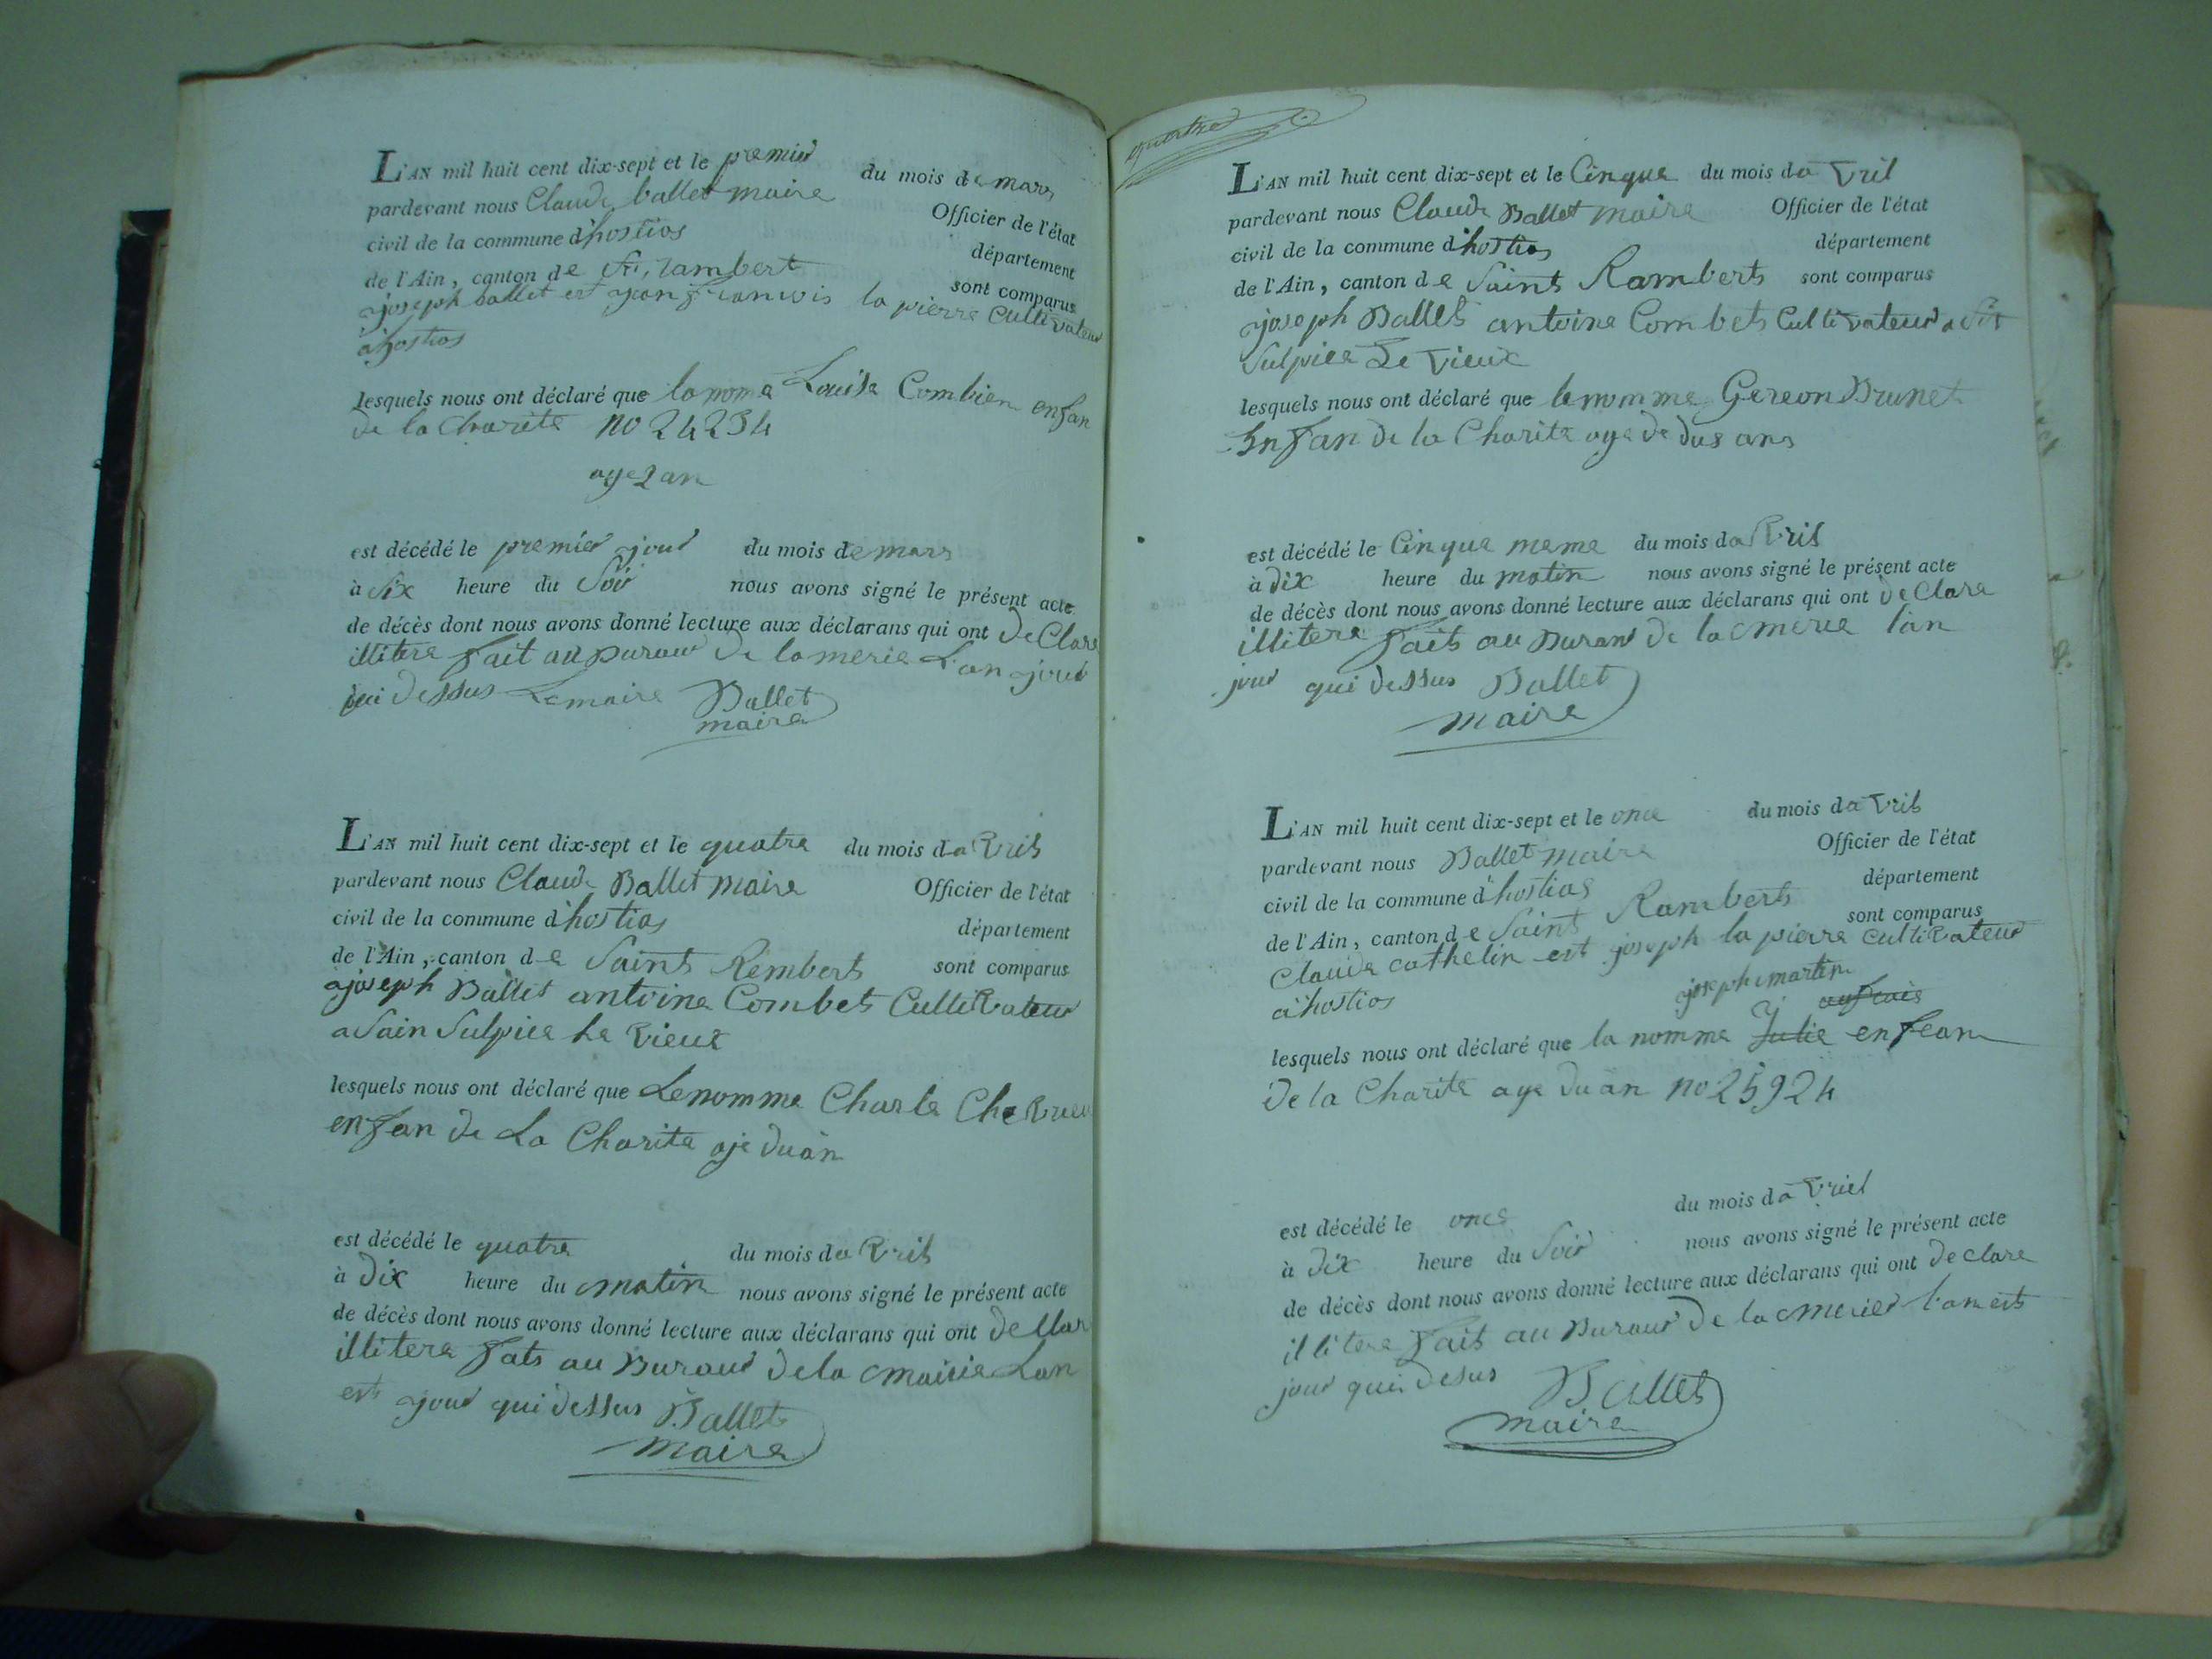 L'AN mil huit cent dix-sept et le premier du mois de mars
pardevant nous Claude ballet maire Officier de l'état
civil de la commune d'hostios département
de l'Ain, canton de St. rambert sont comparus
joseph ballet est jean francois la pierre Cultivateur
a hostios
lesquels nous ont déclaré que la nome Louise Combien enfan
de la Charite no 24234
age 2 an
est décédé le premier jour du mois de mars
à Six heure du Soir nous avons signé le présent acte
de décès dont nous avons donné lecture aux déclarans qui ont de Clare
illitere fait au buraur de la merie L'an jour
qui dessus Le maire Ballet
maire
L'AN mil huit cent dix-sept et le quatre du mois da vril
pardevant nous Claude Ballet maire Officier de l'état
civil de la commune d'hostios département
de l'Ain, canton de Saint Rembert sont comparus
joseph Ballet antoine Combet Cultivateur
a Sain Sulpice Le vieux
lesquels nous ont déclaré que Le nomme Charle
enfan de La Charite aje duan
est décédé le quatre du mois da vril
à dix heure du matin nous avons signé le présent acte
de décès dont nous avons donné lecture aux déclarans qui ont de Clar
illitere fait au Buraur de la mairie Lan
est jour qui dessus Ballet
maire
quatre
L'AN mil huit cent dix-sept et le Cinque du mois da vril
pardevant nous Claude Ballet maire Officier de l'état
civil de la commune d'hostios département
de l'Ain, canton de Saint Rambert sont comparus
joseph Ballet antoine Combet Cultivateur a St
Sulpice Le vieux
lesquels nous ont déclaré que le nomme Gereon Brunet
Enfan de la Charite age de dus ans
est décédé le Cinque meme du mois da vril
à dix heure du matin nous avons signé le présent acte
de décès dont nous avons donné lecture aux déclarans qui ont de Clare
illitere fait au Buraur de la merie lan
jour qui dessus Ballet
maire
L'AN mil huit cent dix-sept et le once du mois da vril
pardevant nous Ballet maire Officier de l'état
civil de la commune d'hostios département
de l'Ain, canton de Saint Rambert sont comparus
Claude cathelin est joseph la pierre cultivateur
a hostios
joseph martin
lesquels nous ont déclaré que la nomme Julie enfean
de la Charite age duan no 25924
est décédé le once du mois da vriel
à dix heure du Soir nous avons signé le présent acte
de décès dont nous avons donné lecture aux déclarans qui ont declare
illitere fait au Buraur de la merier l'an est
jour qui desus Ballet
maire